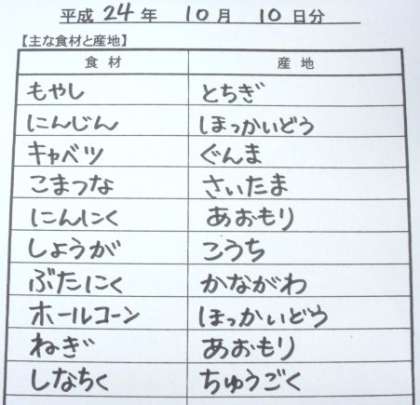 平成 24 年 10 月 10 日分
【主な食材と産地】
食材 産地
もやし とちぎ
にんじん ほっかいどう
キャベツ ぐんま
こまつな さいたま
にんにく あおもり
しょうが こうち
ぶたにく かながわ
ホールコーン ほっかいどう
ねぎ あおもり
しなちく ちゅうごく